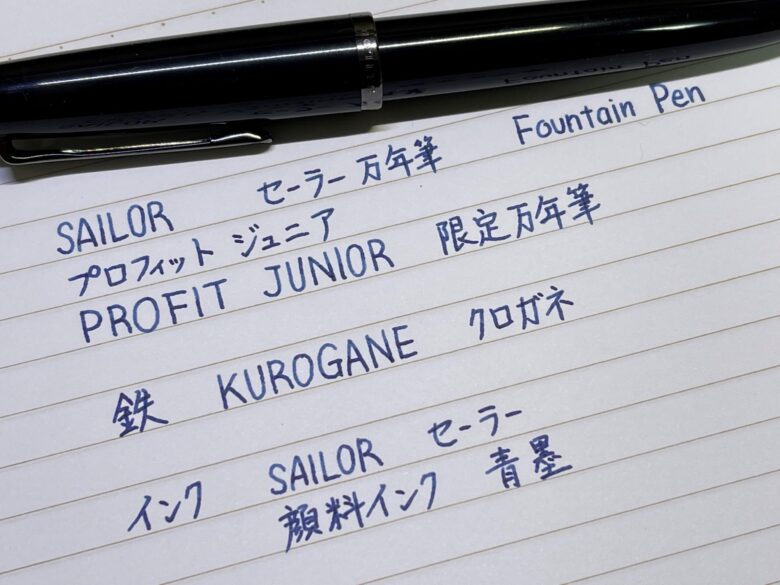 SAILOR セーラー万年筆 Fountain Pen
プロフィット ジュニア
PROFIT JUNIOR 限定万年筆
鉄 KUROGANE クロガネ
インク SAILOR セーラー
顔料インク 青墨